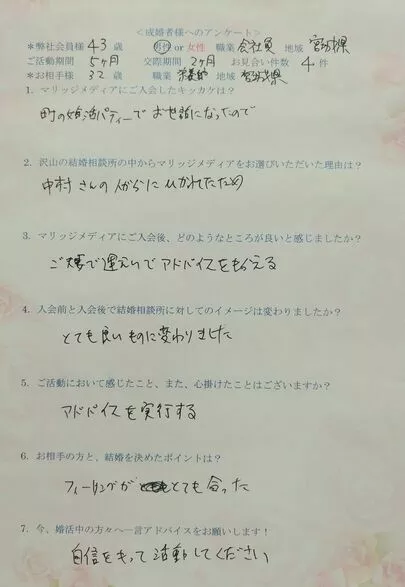 <成婚者様へのアンケート>
*弊社会員様 43 歳 男性 or 女性 職業 会社員 地域 宮城県
ご活動期間 5ヶ月 交際期間 2ヶ月 お見合い件数 4 件
*お相手様 32 歳 職業 地域 宮城県
1. マリッジメディアにご入会したキッカケは?
町の婚活パーティーでお世話になったので
2. 沢山の結婚相談所の中からマリッジメディアをお選びいただいた理由は?
中村さんの人がらにひかれたため
3. マリッジメディアにご入会後、どのようなところが良いと感じましたか?
アドバイスをもらえる
4. 入会前と入会後で結婚相談所に対してのイメージは変わりましたか?
とても良いものに変わりました
5. ご活動において感じたこと、また、心掛けたことはございますか?
アドバイスを実行する
6. お相手の方と、結婚を決めたポイントは?
フィーリングがとても合った
7. 今、婚活中の方々へ一言アドバイスをお願いします!
自信をもって活動してください